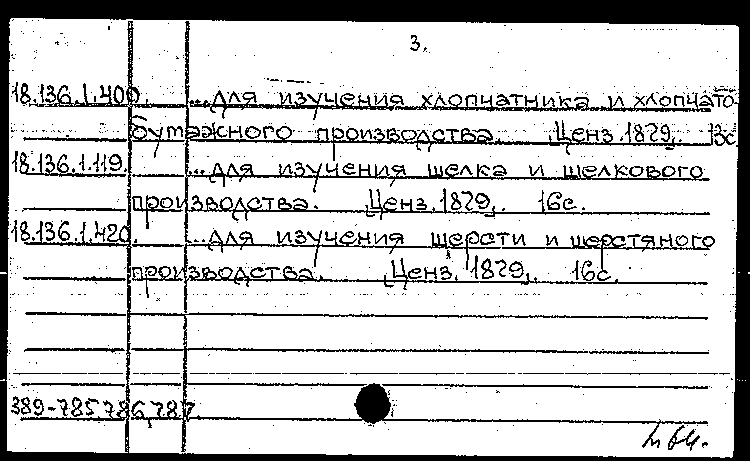 3.
18.136.1.400. ...для изучения хлопчатника и хлопчато-
бумажного производства. [Ценз. 1879]. 13с
18.136.1.119. ...для изучения шелка и шелкового
производства. [Ценз. 1879]. 16с.
18.136.1.420. ...для изучения шерсти и шерстяного
производства. [Ценз. 1879]. 16с.
389-785,786,787.